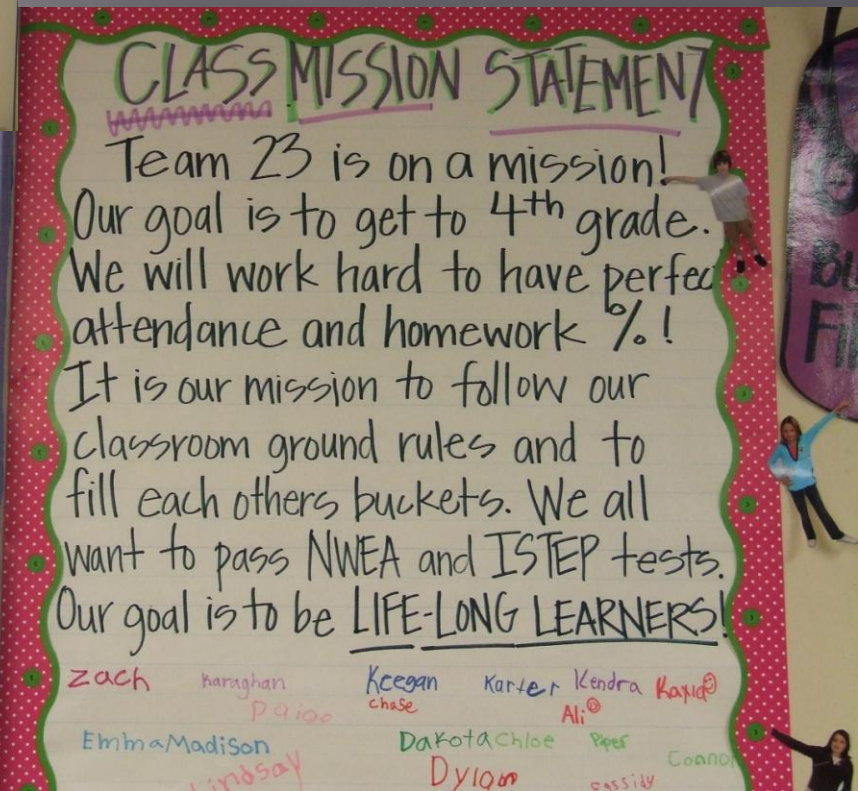 CLASS MISSION STATEMENT
Team 23 is on a mission!
Our goal is to get to 4th grade.
We will work hard to have perfec
attendance and homework %!
It is our mission to follow our
classroom ground rules and to
fill each others buckets. We all
want to pass NWEA and ISTEP tests.
Our goal is to be LIFE-LONG LEARNERS!
Zach Karaghan Keegan Karter Kendra
Paige Chase Ali
Emma Madison Dakota Chloe Piper Connor
Lindsay Dylan Cassidy